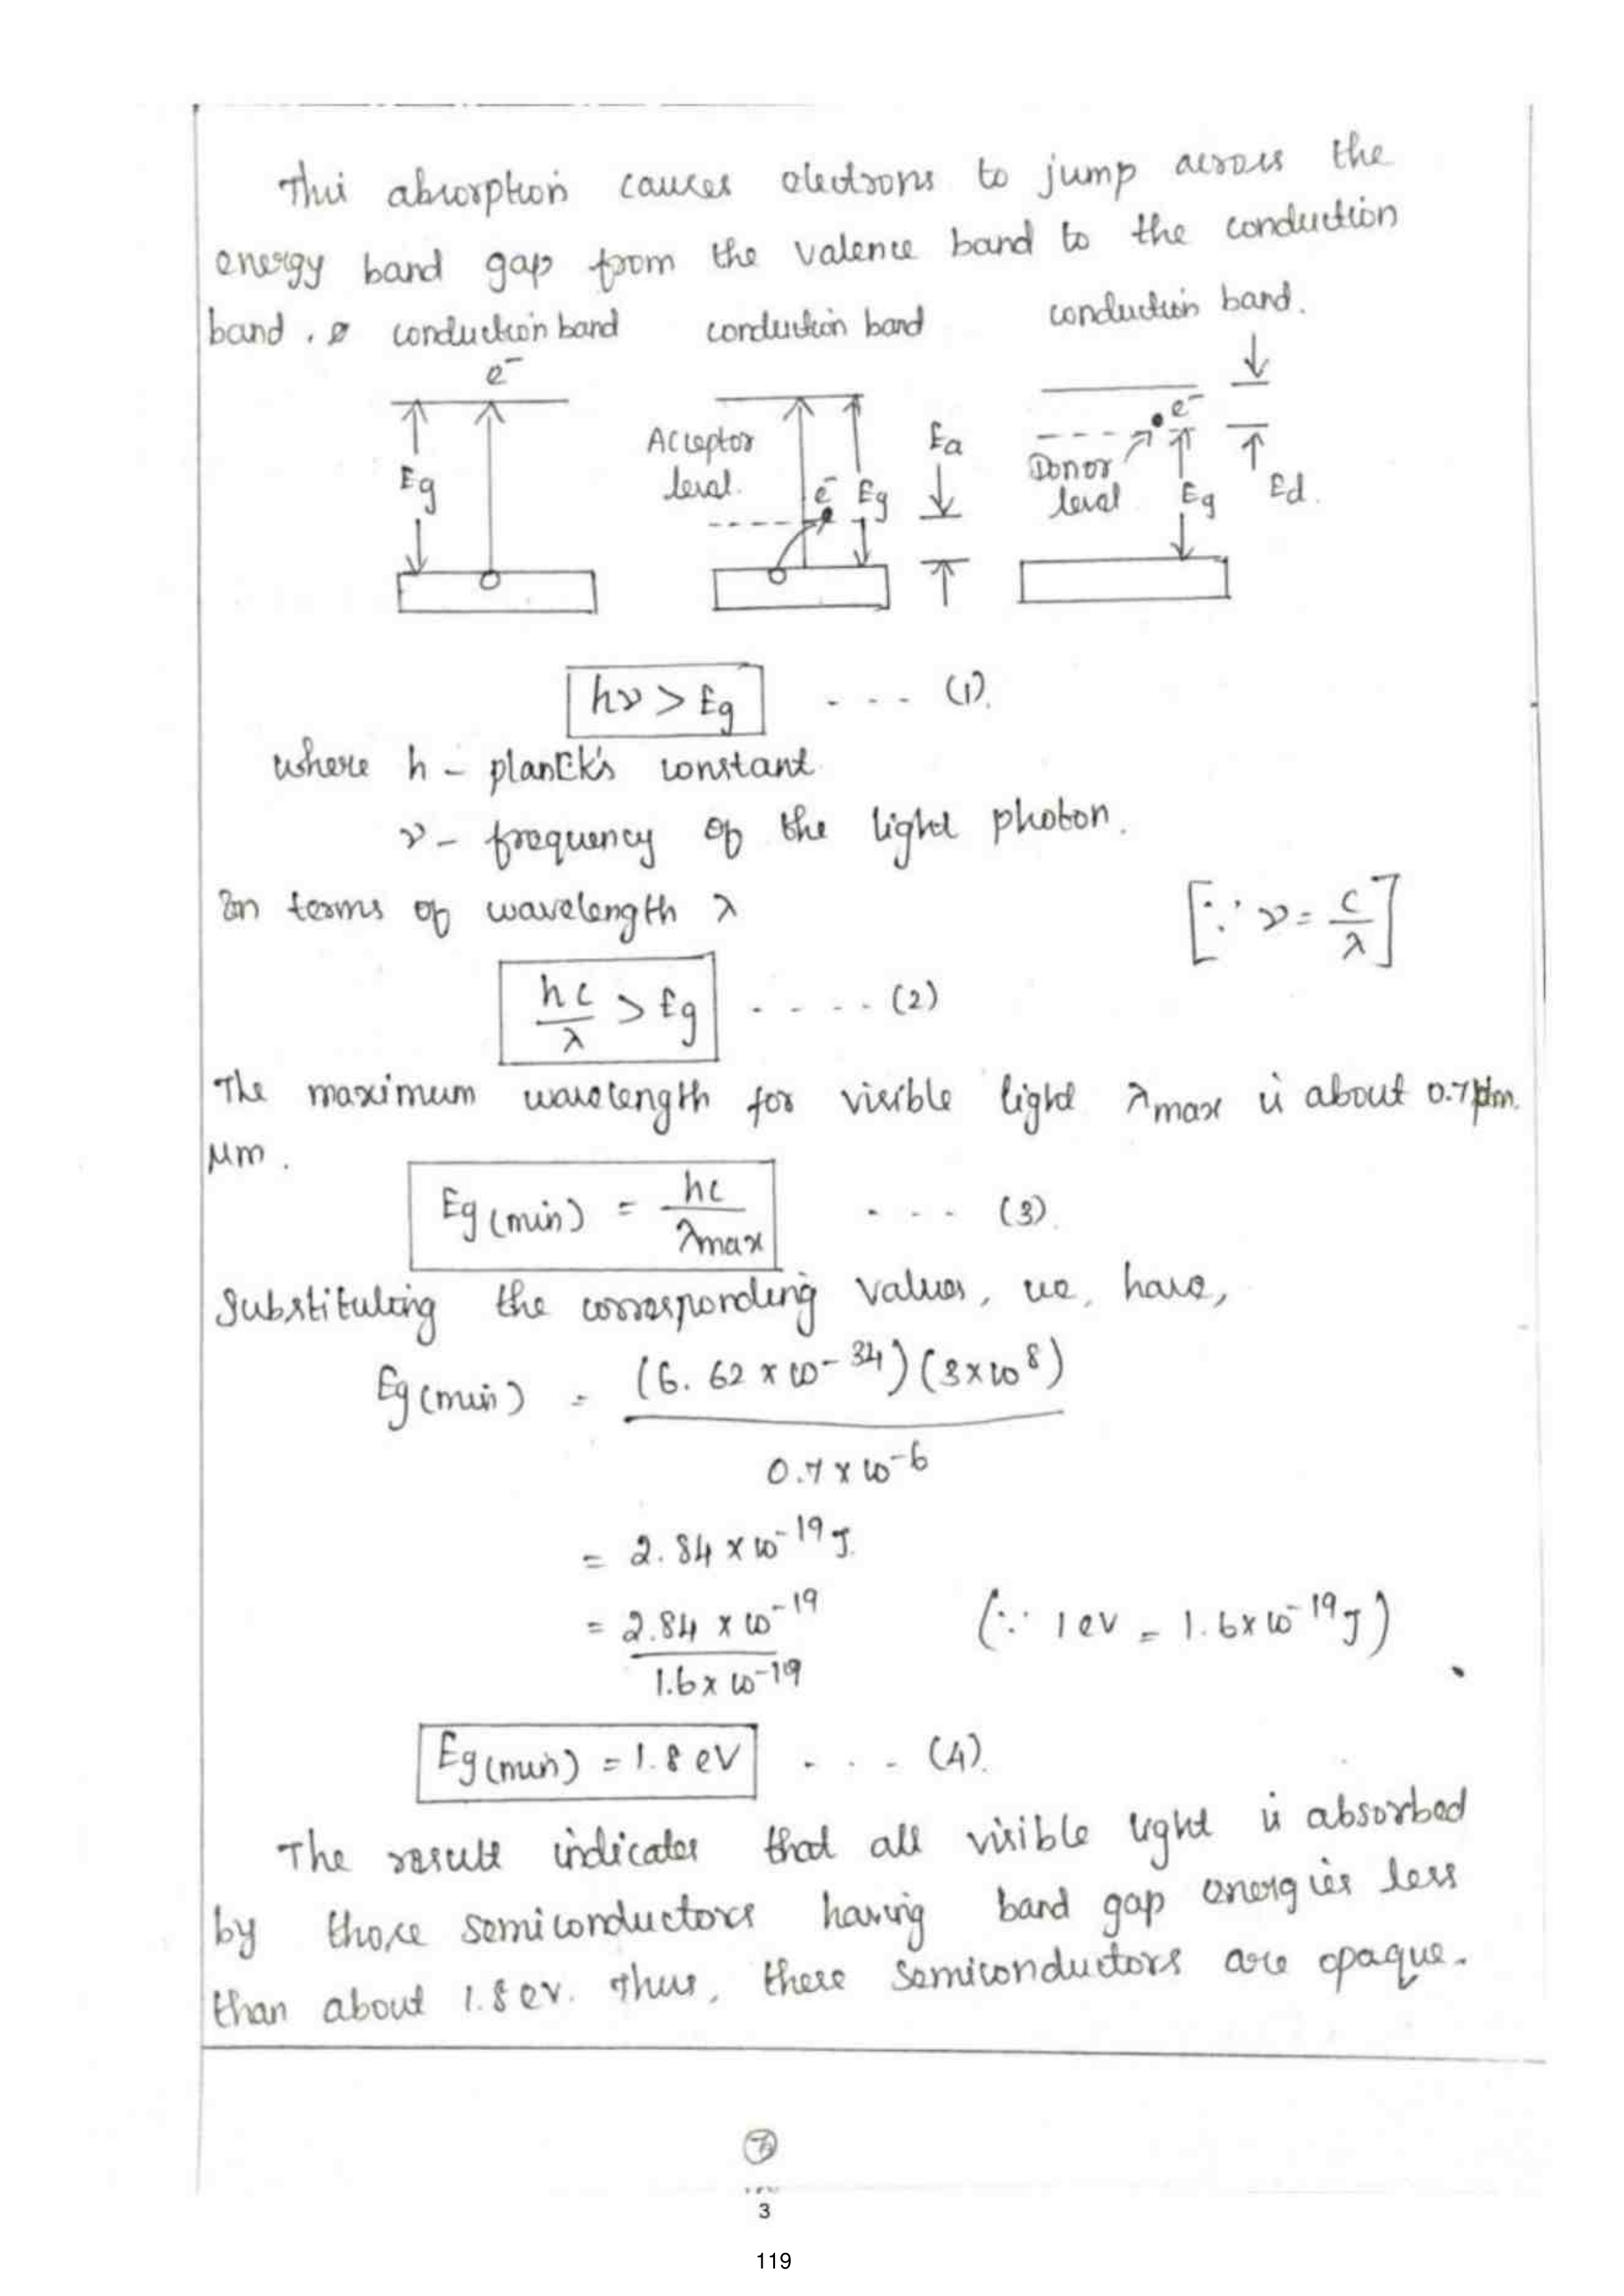 This absorption causes electrons to jump across the
energy band gap from the valence band to the conduction
band. conduction band conduction band conduction band.
e⁻
Acceptor level. Ea e⁻
Eg e⁻ Eg Donor level Eg Ed.
hν > Eg .... (1).
where h - planck's constant
ν - frequency of the light photon.
In terms of wavelength λ [∵ ν = c/λ]
hc/λ > Eg ..... (2)
The maximum wavelength for visible light λmax is about 0.7
μm.
Eg(min) = hc/λmax .... (3).
Substituting the corresponding values, we, have,
Eg(min) = (6.62 x 10⁻³⁴)(3x10⁸)
0.7 x 10⁻⁶
= 2.84 x 10⁻¹⁹ J.
= 2.84 x 10⁻¹⁹ (∵ 1 eV = 1.6x10⁻¹⁹ J)
1.6 x 10⁻¹⁹
Eg(min) = 1.8 eV .... (4).
The result indicates that all visible light is absorbed
by those semiconductors having band gap energies less
than about 1.8 eV. Thus, these semiconductors are opaque.
3
119